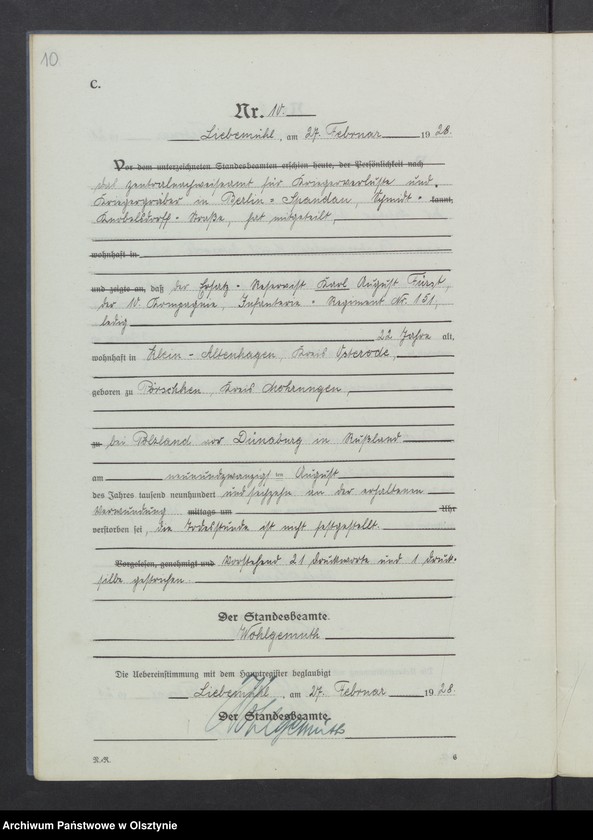 10
C.
Nr. 10.
Liebemühl, am 27. Februar 1928.
Vor dem unterzeichneten Standesbeamten erschien heute, der Persönlichkeit nach
das Zentralnachweiseamt für Kriegerverluste und
Kriegergräber in Berlin-Spandau, Schmidt- kannt,
Knobelsdorff-Straße, hat mitgeteilt,
wohnhaft in
und zeigte an, daß der Ersatz-Reservist Karl August Fürst,
der 10. Kompagnie, Infanterie-Regiment Nr. 151,
ledig
22 Jahre alt,
wohnhaft in Klein-Altenhagen, Kreis Osterode,
geboren zu Pörschken, Kreis Mohrungen,
zu bei Pölzland vor Dünaburg in Rußland
am neunundzwanzigsten August
des Jahres tausend neunhundert und sechzehn an der erhaltenen
Verwundung mittags um Uhr
verstorben sei, die Todesstunde ist nicht festgestellt.
Vorgelesen, genehmigt und Vorstehend 21 Druckworte und 1 Druck-
silbe gestrichen.
Der Standesbeamte.
Wohlgemuth
Die Uebereinstimmung mit dem Hauptregister beglaubigt
Liebemühl, am 27. Februar 1928.
Der Standesbeamte.
Wohlgemuth
6
Archiwum Państwowe w Olsztynie